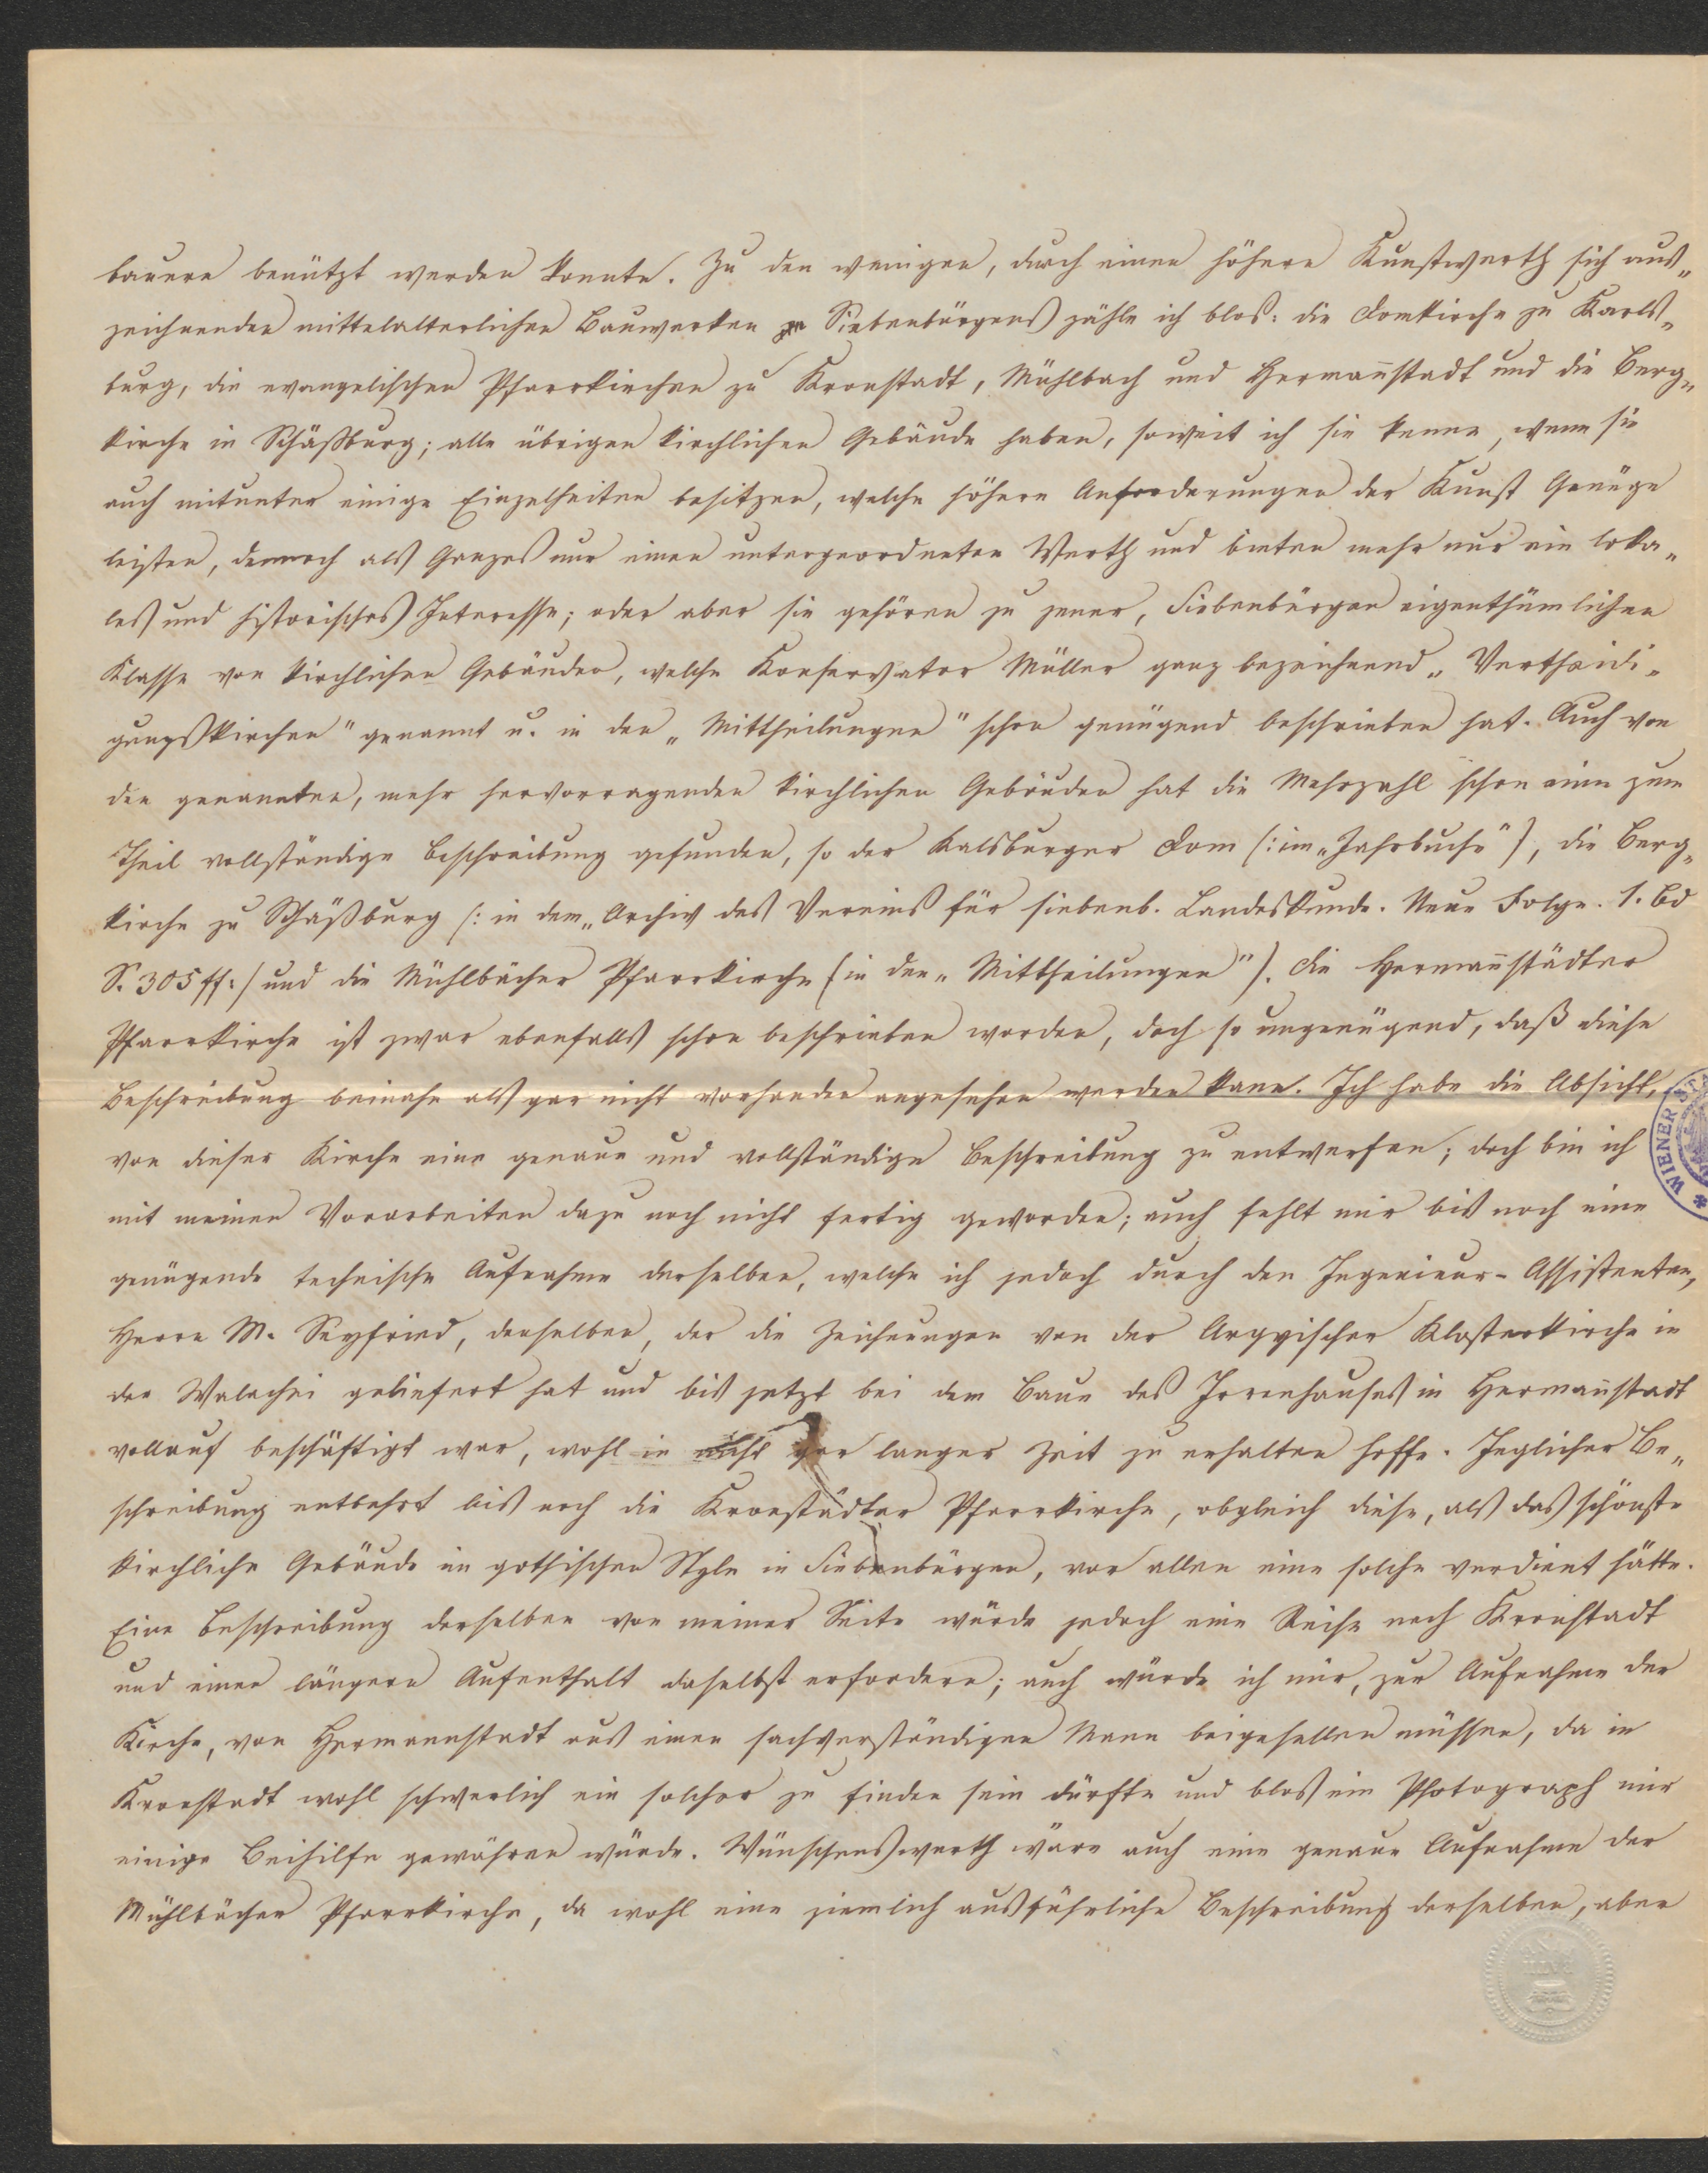 bauern benützt werden konnte. Zu den wenigen, durch einen höhern Kunstwerth sich aus„
zeichnenden mittelalterlichen Bauwerken Siebenbürgens zähle ich blos: die Domkirche zu Karls„
burg, die evangelischen Pfarrkirchen zu Kronstadt, Mühlbach und Herman̄stadt und die Berg„
kirche in Schäßburg; alle übrigen kirchlichen Gebäude haben, soweit ich sie kenne, wenn sie
auch mitunter einige Einzelheiten besitzen, welche höhern Anforderungen der Kunst Genüge
leisten, dennoch als Ganzes nur einen untergeordneten Werth und bieten mehr nur ein loka„
les und historisches Interesse; oder aber sie gehören zu jener, Siebenbürgen eigenthümlichen
Klasse von kirchlichen Gebäuden, welche Konservator Müller ganz bezeichnend „Vertheidi„
gungskirchen" genannt u. in den „Mittheilungen" schon genügend beschrieben hat. Auch von
den genannten, mehr hervorragenden kirchlichen Gebäuden hat die Mehrzahl schon eine zum
Theil vollständige Beschreibung gefunden, so der Kalsburger Dom (: im „Jahrbuche"), die Berg„
kirche zu Schäßburg (: in dem „Archiv des Vereins für siebenb. Landeskunde. Neue Folge. 1. Bd
S. 305 ff :) und die Mühlbächer Pfarrkirche (in den „Mittheilungen"). Die Herman̄städter
Pfarrkirche ist zwar ebenfalls schon beschrieben worden, doch so ungenügend, daß diese
Beschreibung beinahe als gar nicht vorhanden angesehen werden kann. Ich habe die Absicht,
von dieser Kirche eine genaue und vollständige Beschreibung zu entwerfen; doch bin ich
mit meinen Vorarbeiten dazu noch nicht fertig geworden; auch fehlt mir bis noch eine
genügende technische Aufnahme derselben, welche ich jedoch durch den Ingenieur-Assistenten,
Herrn M. Seyfried, denselben, der die Zeichnungen von der Argyischen Klosterkirche in
der Walachei geliefert hat und bis jetzt bei dem Baue des Irrenhauses in Herman̄stadt
vollauf beschäftigt war, wohl in nicht gar langer Zeit zu erhalten hoffe. Jeglicher Be„
schreibung entbehrt bis noch die Kronstädter Pfarrkirche, obgleich diese, als das schönste
kirchliche Gebäude im gothischen Style in Siebenbürgen, vor allen eine solche verdient hätte.
Eine Beschreibung derselben von meiner Seite würde jedoch eine Reise nach Kronstadt
und einen längern Aufenthalt daselbst erfordern; auch würde ich mir, zur Aufnahme der
Kirche, von Hermannstadt aus einen sachverständigen Mann beigesellen müssen, da in
Kronstadt wohl schwerlich ein solcher zu finden sein dürfte und blos ein Photograph mir
einige Beihilfe gewähren würde. Wünschenswerth wäre auch eine genaue Aufnahme der
Mühlbächer Pfarrkirche, da wohl eine ziemlich ausführliche Beschreibung derselben, aber
WIENER